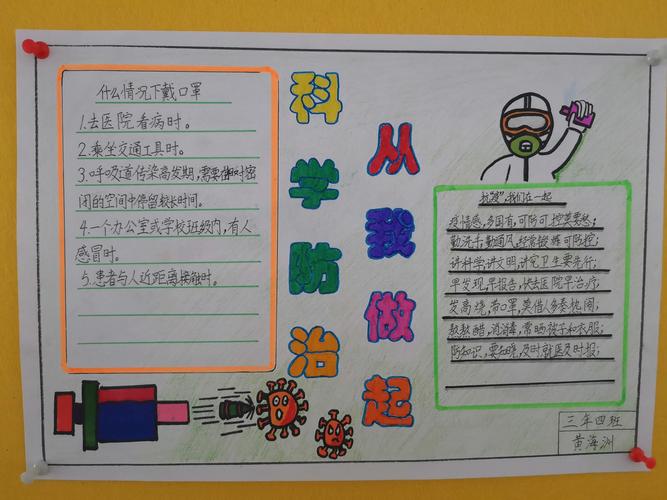 什么情况下戴口罩
1.去医院看病时。
2.乘坐交通工具时。
3.呼吸道传染高发期,需要在相对密
闭的空间中停留较长时间。
4.一个办公室或学校班级内,有人
感冒时。
5.患者与人近距离接触时。
科学防治
从我做起
抗"疫",我们在一起
疫情感,多国有,可防可控莫要愁;
勤洗手,勤通风,经常锻炼可防控;
讲科学,讲文明,讲究卫生要先行;
早发现,早报告,快去医院早治疗,
发高烧,带口罩,莫借人多凑热闹,
熬熬醋,消消毒,常晒被子和衣服;
防知识,要知晓,及时就医及时报;
三年四班
黄海洲